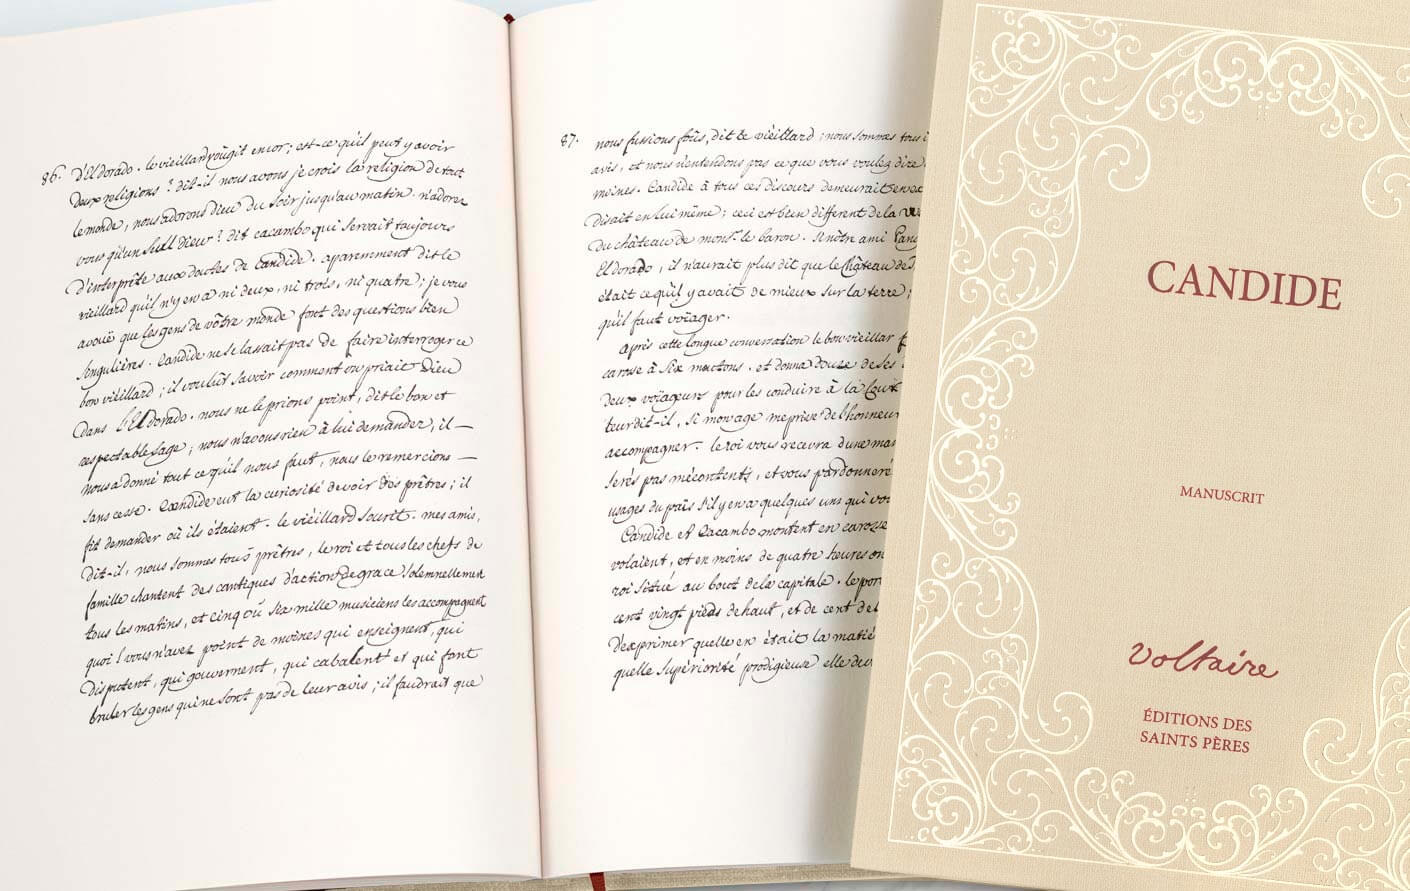 86. d'Eldorado. le vieillard rougit encor; est-ce qu'il peut y avoir
deux religions? dit-il nous avons je crois la religion de tout
le monde, nous adorons dieu du soir jusqu'au matin. n'adorez
vous qu'un seul dieu? dit cacambo qui servait toujours
d'interprête aux doutes de candide. apparemment dit le
vieillard qu'il n'y en a ni deux, ni trois, ni quatre; je vous
avouë que les gens de vôtre monde font des questions bien
singulières. Candide ne se lassait pas de faire interroger ce
bon vieillard; il voulut savoir comment on priait Dieu
dans l'Eldorado. nous ne le prions point, dit le bon et
respectable sage; nous n'avons rien à lui demander, il —
nous a donné tout ce qu'il nous faut, nous le remercions —
sans cesse. Candide eut la curiosité de voir des prêtres; il
fit demander où ils étaient. le vieillard sourit. mes amis,
dit-il, nous sommes tous prêtres, le roi et tous les chefs de
famille chantent des cantiques d'action de grace solemnellement
tous les matins, et cinq où six mille musiciens les accompagnent
quoi! vous n'avez point de moines qui enseignent, qui
disputent, qui gouvernent, qui cabalent et qui font
bruler les gens qui ne sont pas de leur avis; il faudrait que
87. nous fussions fous, dit le vieillard; nous sommes tous
avis, et nous n'entendons pas ce que vous voulez dire
moines. Candide à tous ces discours demeurait en
disait en lui même; ceci est bien différent de la
du château de mons.r le baron. si nôtre ami Pan
Eldorado, il n'aurait plus dit que le château de
était ce qu'il y avait de mieux sur la terre;
qu'il faut voïager.
après cette longue conversation le bon vieillar
carosse à six moutons. et donna douze de ses
deux voïageurs pour les conduire à la Cour
teur dit-il, si mon age me prive de l'honneur
accompagner. le roi vous recevra d'une ma
serés pas mécontents, et vous pardonneré
usages du païs s'il y en a quelques uns qui vou
Candide et Cacambo montent en carosse
volaient, et en moins de quatre heures on
roi situé au bout de la capitale. le por
cent vingt pieds de haut, et de cent de
d'exprimer quelle en était la matié
quelle supériorité prodigieuse elle dev
CANDIDE
MANUSCRIT
Voltaire
ÉDITIONS DES
SAINTS PÈRES